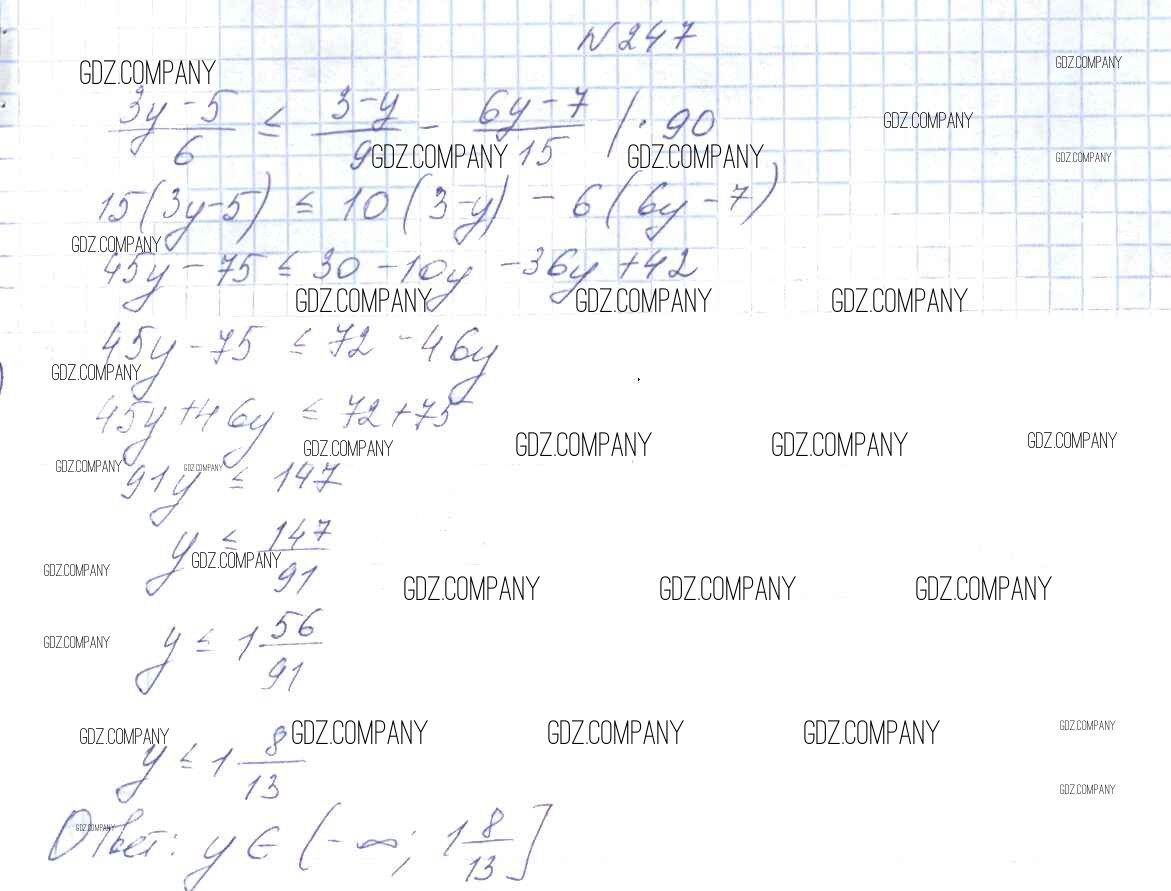 N 247
GDZ.COMPANY GDZ.COMPANY
(3y-5)/6 ≤ (3-y)/9 - (6y-7)/15 | · 90
GDZ.COMPANY
GDZ.COMPANY GDZ.COMPANY GDZ.COMPANY
15(3y-5) ≤ 10(3-y) - 6(6y-7)
GDZ.COMPANY
45y - 75 ≤ 30 - 10y - 36y + 42
GDZ.COMPANY GDZ.COMPANY GDZ.COMPANY
45y - 75 ≤ 72 - 46y
GDZ.COMPANY
45y + 46y ≤ 72 + 75
GDZ.COMPANY GDZ.COMPANY GDZ.COMPANY GDZ.COMPANY
GDZ.COMPANY GDZ.COMPANY
91y ≤ 147
y ≤ 147/91
GDZ.COMPANY GDZ.COMPANY
GDZ.COMPANY GDZ.COMPANY GDZ.COMPANY
y ≤ 1 56/91
GDZ.COMPANY
GDZ.COMPANY GDZ.COMPANY GDZ.COMPANY GDZ.COMPANY GDZ.COMPANY
y ≤ 1 8/13
GDZ.COMPANY
GDZ.COMPANY
Ответ: y ∈ (-∞; 1 8/13]